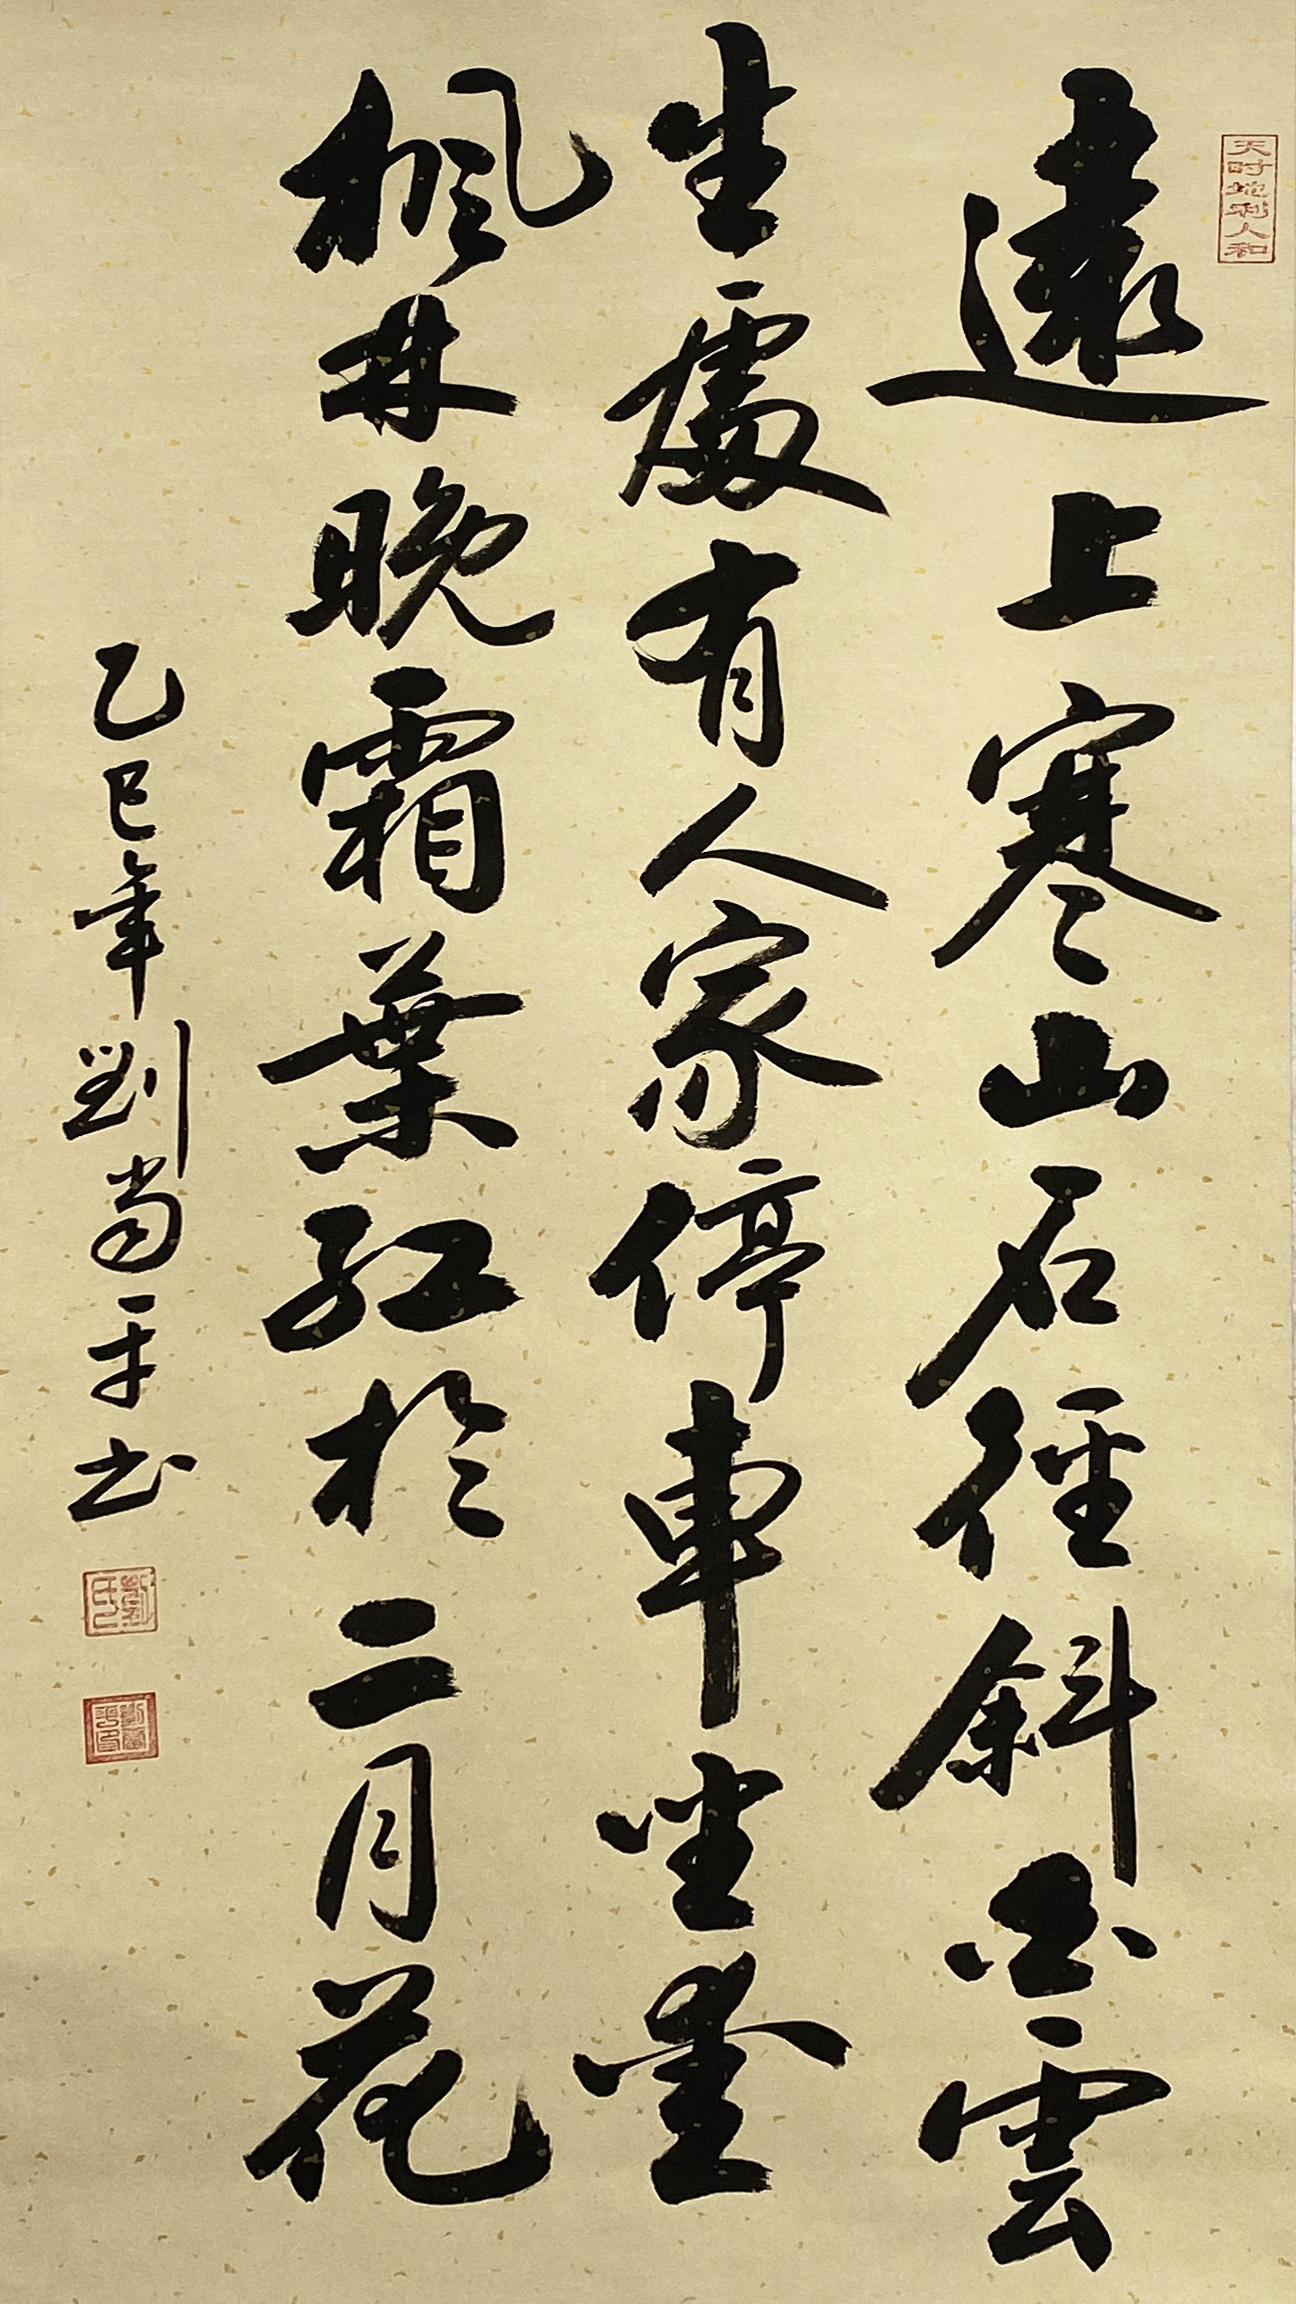 天时地利人和
遠上寒山石徑斜白雲
生處有人家停車坐愛
楓林晚霜葉紅於二月花
乙巳年劉尚平书
劉氏